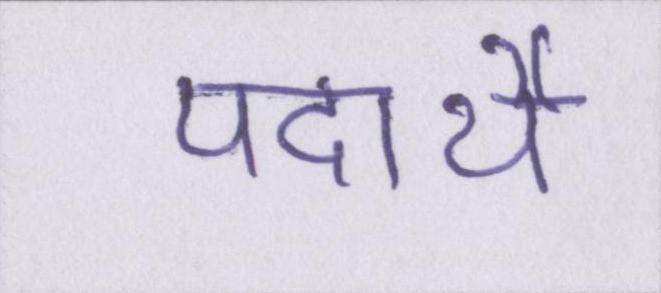 पदार्थै